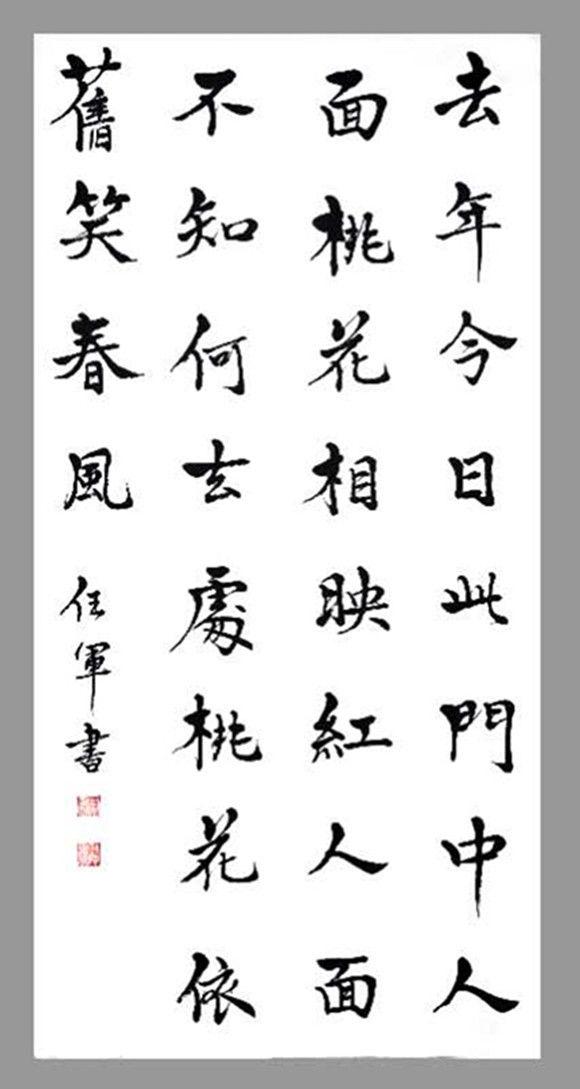 去年今日此門中人
面桃花相映紅人面
不知何去處桃花依
舊笑春風
任軍書